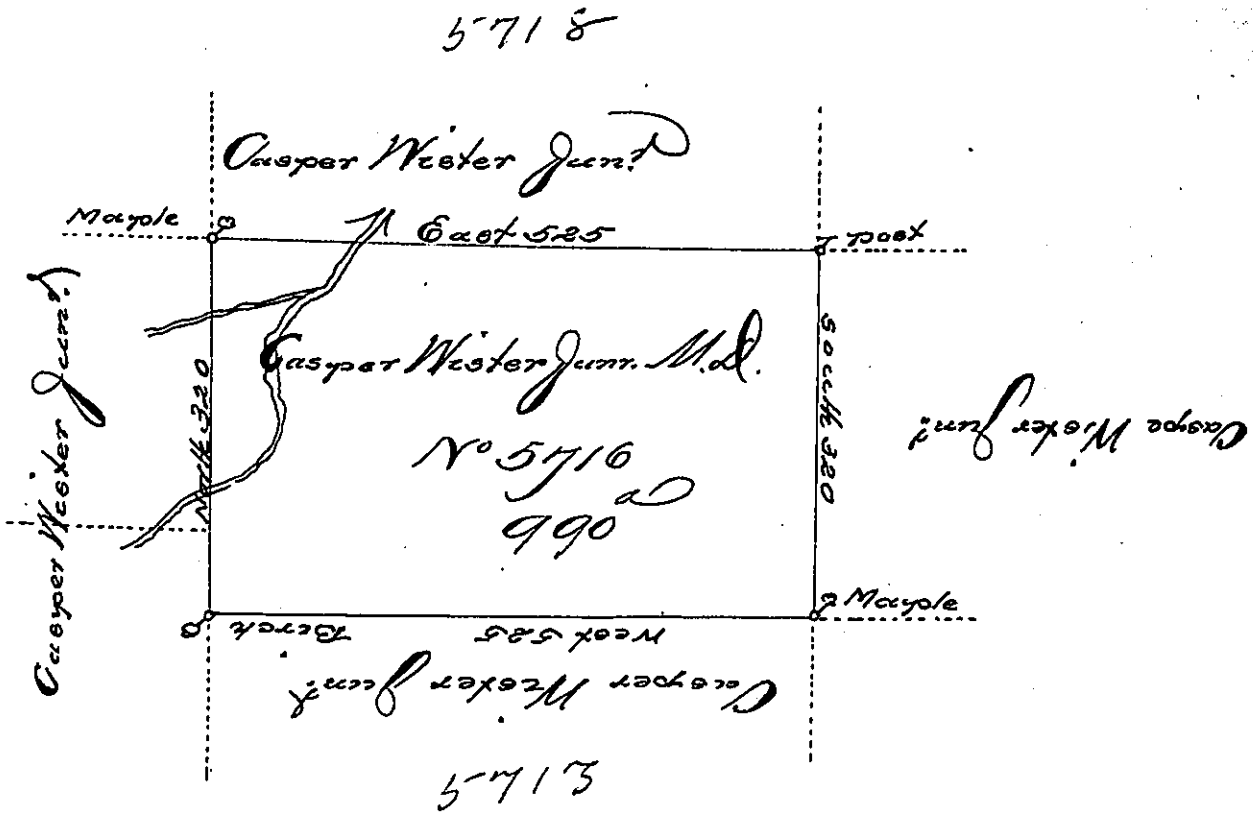 5718
Casper Wister Junr
Maple
East 525
post
Casper Wister Junr
North 320
Casper Wister Junr. M.D.
South 320
Caspr Wister Junr
No 5716
990 a
Birch
West 525
Maple
Casper Wister Junr
5713